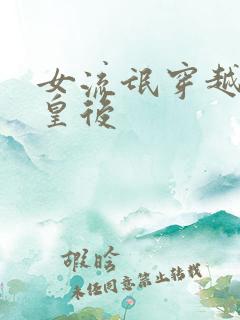 女流氓穿越
皇後
暇晗
未经同意禁止转载